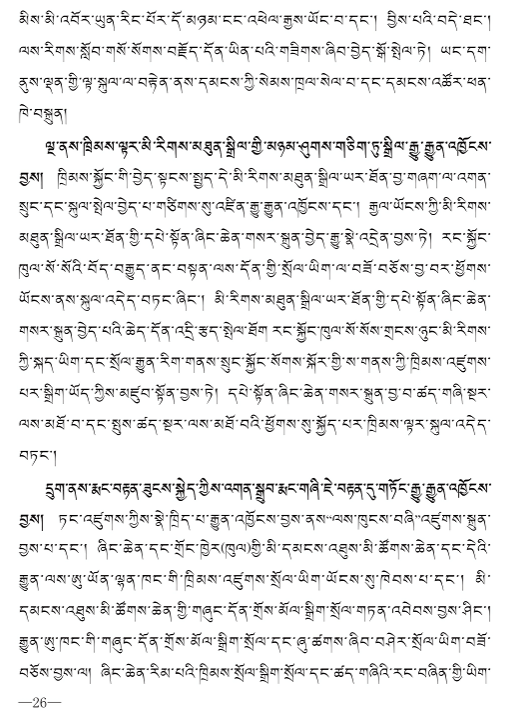 མིས་མི་འབོར་ཡུན་རིང་པོར་དོ་མཉམ་ངང་འཕེལ་རྒྱས་ཡོང་བ་དང་། བྱིས་པའི་བདེ་ཐང་།
ལས་རིགས་སློབ་གསོ་སོགས་བརྗོད་དོན་ཡིན་པའི་གཟིགས་ཞིབ་བྱེད་སྒོ་སྤེལ་ཏེ། ཡང་དག་
ནུས་ལྡན་གྱི་ལྟ་སྐུལ་ལ་བརྟེན་ནས་དམངས་ཀྱི་སེམས་ཁྲལ་སེལ་བ་དང་དམངས་འཚོར་ཕན་
ཁེ་བསྐྲུན།
ལྔ་ནས་ཁྲིམས་ལྟར་མི་རིགས་མཐུན་སྒྲིལ་གྱི་མཉམ་ཤུགས་གཅིག་ཏུ་སྒྲིལ་རྒྱུ་རྒྱུན་འཁྱོངས་
བྱས། ཁྲིམས་སྐྱོང་གི་བྱེད་སྟངས་སྤྱད་དེ་མི་རིགས་མཐུན་སྒྲིལ་ཡར་ཐོན་བྱ་གཞག་ལ་འགན་
སྲུང་དང་སྐུལ་སྤེལ་བྱེད་པ་གཙིགས་སུ་འཛིན་རྒྱུ་རྒྱུན་འཁྱོངས་དང་། རྒྱལ་ཡོངས་ཀྱི་མི་རིགས་
མཐུན་སྒྲིལ་ཡར་ཐོན་གྱི་དཔེ་སྟོན་ཞིང་ཆེན་གསར་སྐྲུན་བྱེད་རྒྱུ་སྣེ་འདྲེན་བྱས་ཏེ། རང་སྐྱོང་
ཁུལ་སོ་སོའི་བོད་བརྒྱུད་ནང་བསྟན་ལས་དོན་གྱི་སྲོལ་ཡིག་ལ་བཟོ་བཅོས་བྱ་བར་ཕྱོགས་
ཡོངས་ནས་སྐུལ་འདེད་བཏང་ཞིང་། མི་རིགས་མཐུན་སྒྲིལ་ཡར་ཐོན་གྱི་དཔེ་སྟོན་ཞིང་ཆེན་
གསར་སྐྲུན་བྱེད་པའི་ཆེད་དོན་འདྲི་རྩད་སྤེལ་ཐོག རང་སྐྱོང་ཁུལ་སོ་སོས་གྲངས་ཉུང་མི་རིགས་
ཀྱི་སྐད་ཡིག་དང་སྲོལ་རྒྱུན་རིག་གནས་སྲུང་སྐྱོང་སོགས་སྐོར་གྱི་ས་གནས་ཀྱི་ཁྲིམས་འཛུགས་
པར་སྒྲིག་ཡོད་ཀྱིས་མཛུབ་སྟོན་བྱས་ཏེ། དཔེ་སྟོན་ཞིང་ཆེན་གསར་སྐྲུན་བྱ་བ་ཚད་གཞི་སྔར་
ལས་མཐོ་བ་དང་སྤུས་ཚད་སྔར་ལས་མཐོ་བའི་ཕྱོགས་སུ་སྐྱོད་པར་ཁྲིམས་ལྟར་སྐུལ་འདེད་
བཏང་།
དྲུག་ནས་རྨང་བརྟན་ཟུངས་སྐྱེད་ཀྱིས་འགན་སྒྲུབ་རྨང་གཞི་ཇེ་བརྟན་དུ་གཏོང་རྒྱུ་རྒྱུན་འཁྱོངས་
བྱས། ཏང་འཛུགས་ཀྱིས་སྣེ་ཁྲིད་པ་རྒྱུན་འཁྱོངས་བྱས་ནས“ལས་ཁུངས་བཞི”འཛུགས་སྐྲུན་
བྱས་པ་དང་། ཞིང་ཆེན་དང་གྲོང་ཁྱེར(ཁུལ)གྱི་མི་དམངས་འཐུས་མི་ཚོགས་ཆེན་དང་དེའི་
རྒྱུན་ལས་ཨུ་ཡོན་ལྷན་ཁང་གི་ཁྲིམས་འཛུགས་སྲོལ་ཡིག་ཡོངས་སུ་ཁེབས་པ་དང་། མི་
དམངས་འཐུས་མི་ཚོགས་ཆེན་གྱི་གཞུང་དོན་གྲོས་མོལ་སྒྲིག་སྲོལ་གཏན་འབེབས་བྱས་ཤིང་།
རྒྱུན་ཨུ་ཁང་གི་གཞུང་དོན་གྲོས་མོལ་སྒྲིག་སྲོལ་དང་ཞུ་ཚགས་ཞིབ་བཤེར་སྲོལ་ཡིག་བཟོ་
བཅོས་བྱས་ལ། ཞིང་ཆེན་རིམ་པའི་ཁྲིམས་སྲོལ་སྒྲིག་སྲོལ་དང་ཚད་གཞིའི་རང་བཞིན་གྱི་ཡིག་
—26—